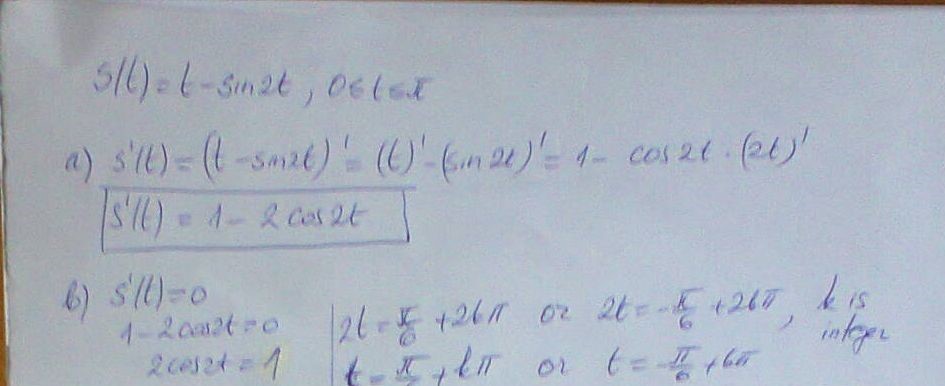 s(t) = t - sin2t , 0 ≤ t ≤ π
a) s'(t) = (t - sin2t)' = (t)' - (sin2t)' = 1 - cos2t · (2t)'
s'(t) = 1 - 2cos2t
b) s'(t) = 0
1 - 2cos2t = 0
2cos2t = 1
2t = π/6 + 2kπ or 2t = -π/6 + 2kπ, k is integer
t = π + kπ or t = -π/6 + kπ